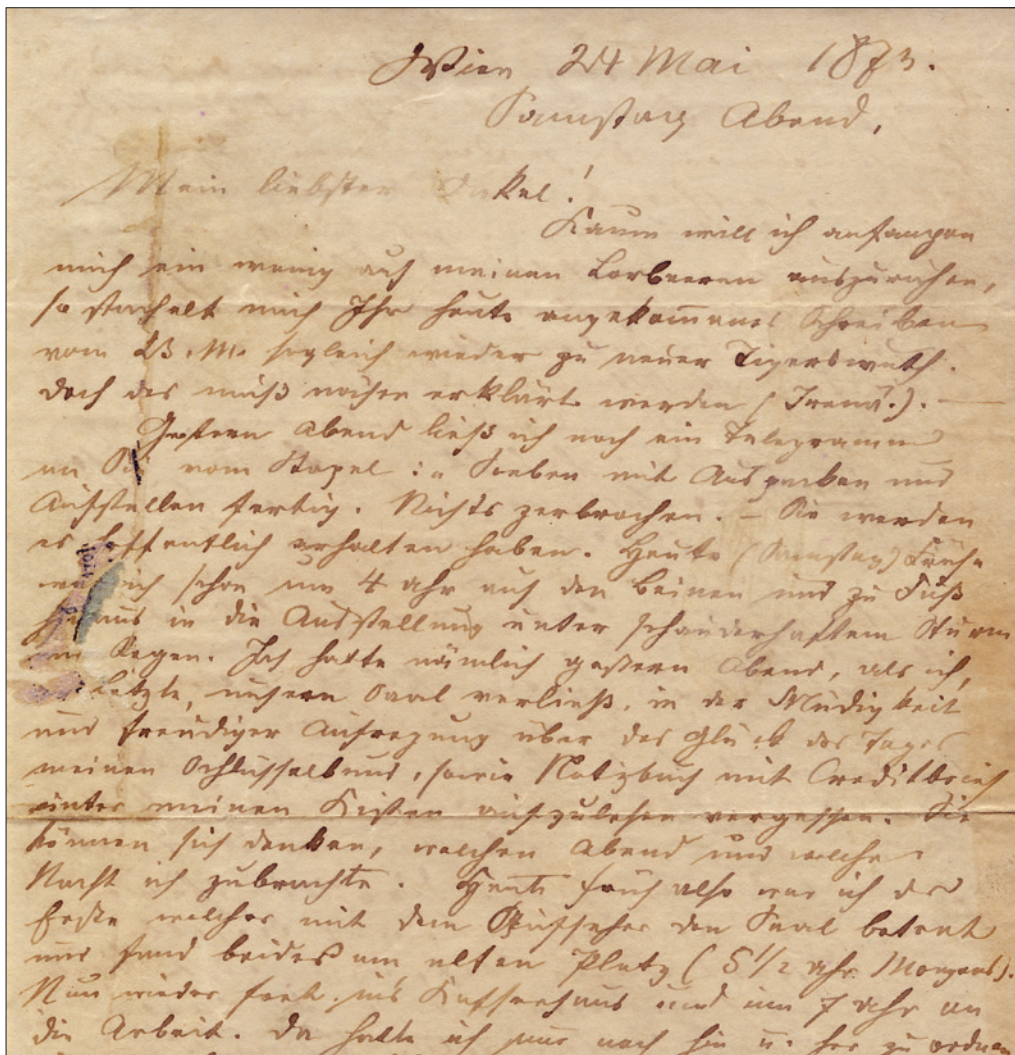 Wien 24 Mai 1873.
Samstag Abend.
Mein liebster Onkel!
Kaum will ich anfangen
mich ein wenig auf meinen Lorbeeren auszuruhen,
so stachelt mich Ihr heute angekommenes Schreiben
vom 23. M. sogleich wieder zu neuer Tigerswuth.
doch das muß näher erklärt werden
Gestern Abend ließ ich noch ein Telegramm
an Sie vom Stapel: „Soeben mit Auspacken und
Aufstellen fertig. Nichts zerbrochen. – Sie werden
es hoffentlich erhalten haben. Heute (Samstag) Früh
war ich schon um 4 Uhr auf den Beinen und zu Fuß
hinaus in die Ausstellung unter schauderhaftem Sturm
und Regen. Ich hatte nämlich gestern Abend, als ich,
Letzte, unsern Saal verließ, in der Müdigkeit
und freudiger Aufregung über das Glück des Tages
meinen Schlüsselbund, sowie Notizbuch mit Creditbrief
unter meinen Kisten aufzulesen vergessen. Sie
können sich denken, welchen Abend und welche
Nacht ich zubrachte. Heute früh also war ich der
Erste welcher mit dem Aufseher den Saal betrat
und fand beides am alten Platz (5 1/2 Uhr Morgens).
Nun wieder fort ins Kaffeehaus und um 7 Uhr an
die Arbeit. Da hatte ich nur noch hin u. her zu ordnen